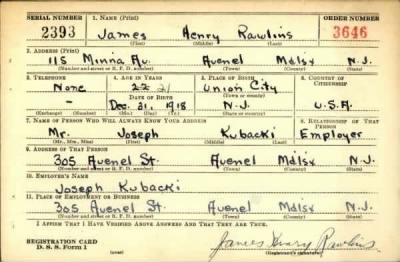 SERIAL NUMBER 1. NAME (Print) ORDER NUMBER
2393 James Henry Rawlins 3646
(First) (Middle) (Last)
2. ADDRESS (Print)
115 Minna Av. Avenel Mdlsx N.J.
(Number and street or R. F. D. number) (Town) (County) (State)
3. TELEPHONE 4. AGE IN YEARS 5. PLACE OF BIRTH 6. COUNTRY OF CITIZENSHIP
None 22 21 Union City
DATE OF BIRTH (Town or county)
- Dec. 31, 1918 N.J. U.S.A.
(Exchange) (Number) (Mo.) (Day) (Yr.) (State or country)
7. NAME OF PERSON WHO WILL ALWAYS KNOW YOUR ADDRESS 8. RELATIONSHIP OF THAT PERSON
Mr. Joseph Kubacki Employer
(Mr., Mrs., Miss) (First) (Middle) (Last)
9. ADDRESS OF THAT PERSON
305 Avenel St. Avenel Mdlsx N.J.
(Number and street or R. F. D. number) (Town) (County) (State)
10. EMPLOYER'S NAME
Joseph Kubacki
11. PLACE OF EMPLOYMENT OR BUSINESS
305 Avenel St. Avenel Mdlsx N.J.
(Number and street or R. F. D. number) (Town) (County) (State)
I AFFIRM THAT I HAVE VERIFIED ABOVE ANSWERS AND THAT THEY ARE TRUE.
REGISTRATION CARD
D. S. S. Form 1 (over) James Henry Rawlins
(Registrant's signature)